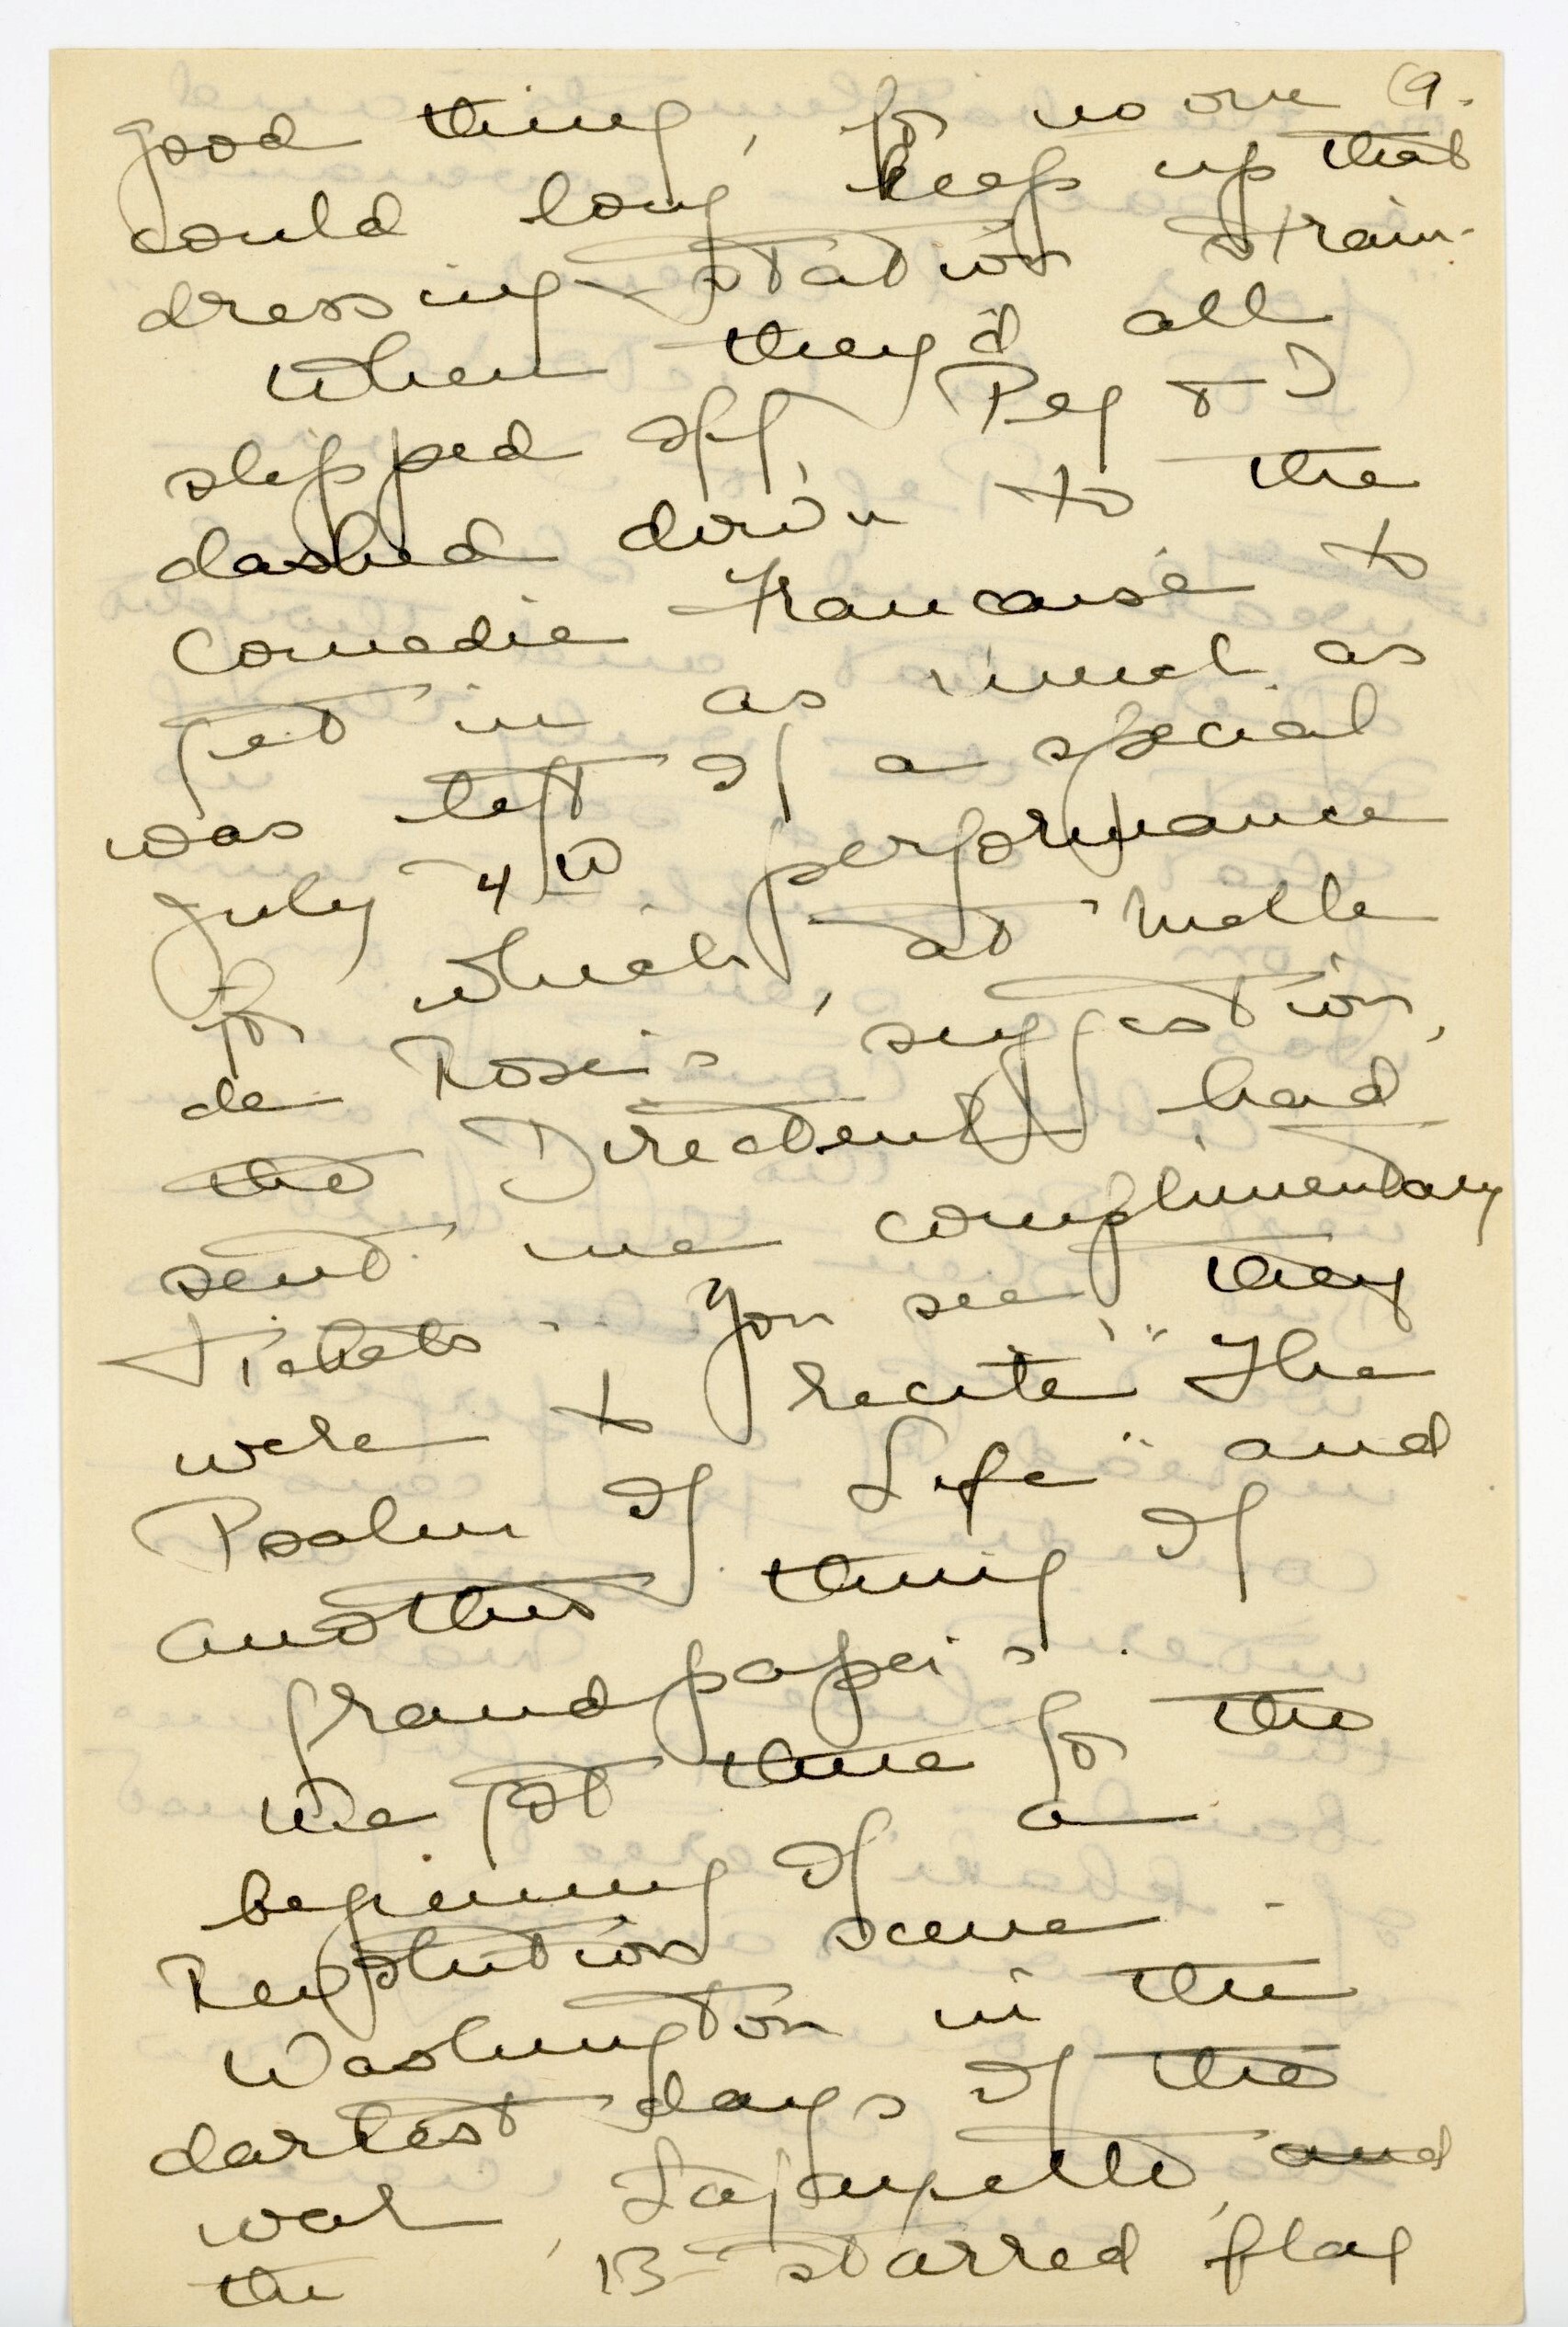 (9.
good thing, for no one
could long keep up that
dressing-station strain.
When they'd all
slipped off, Peg & I
dashed down to the
Comedie Francaise to
get in as much as
was left of a special
July 4th performance
for which, at Melle
de Rose's suggestion,
the Directeur had
sent me complimentary
tickets. You see, they
were to recite "The
Psalm of Life" and
another thing of
Grandpapa's.
We got there for the
beginning of a
Revolution scene -
Washington in the
darkest days of the
war, Lafayette, and
the 13-starred flag